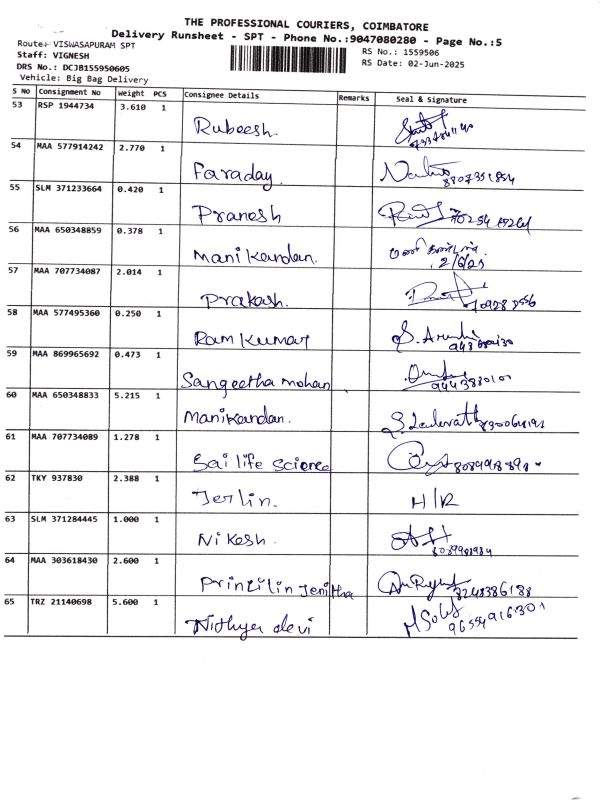 THE PROFESSIONAL COURIERS, COIMBATORE
Delivery Runsheet - SPT - Phone No.:9047080280 - Page No.:5
Route: VISWASAPURAM SPT
RS No.: 1559506
Staff: VIGNESH
RS Date: 02-Jun-2025
DRS No.: DCJB155950605
Vehicle: Big Bag Delivery
S No Consignment No Weight PCS Consignee Details Remarks Seal & Signature
53 RSP 1944734 3.610 1
Rubeesh.
54 MAA 577914242 2.770 1
Faraday.
8807351854
55 SLM 371233664 0.420 1
Pranesh
56 MAA 650348859 0.378 1
Manikandan. மணிகண்டன்
2/6/25
57 MAA 707734087 2.014 1
Prakash.
58 MAA 577495360 0.250 1
Ram Kumar
59 MAA 869965692 0.473 1
Sangeetha mohan
60 MAA 650348833 5.215 1
Manikandan.
61 MAA 707734089 1.278 1
Sai life science
62 TKY 937830 2.388 1
Jerlin. H/R
63 SLM 371284445 1.000 1
Nikesh.
64 MAA 303618430 2.600 1
Printilin Jenitha
8248386188
65 TRZ 21140698 5.600 1
Nithya devi
96554916301